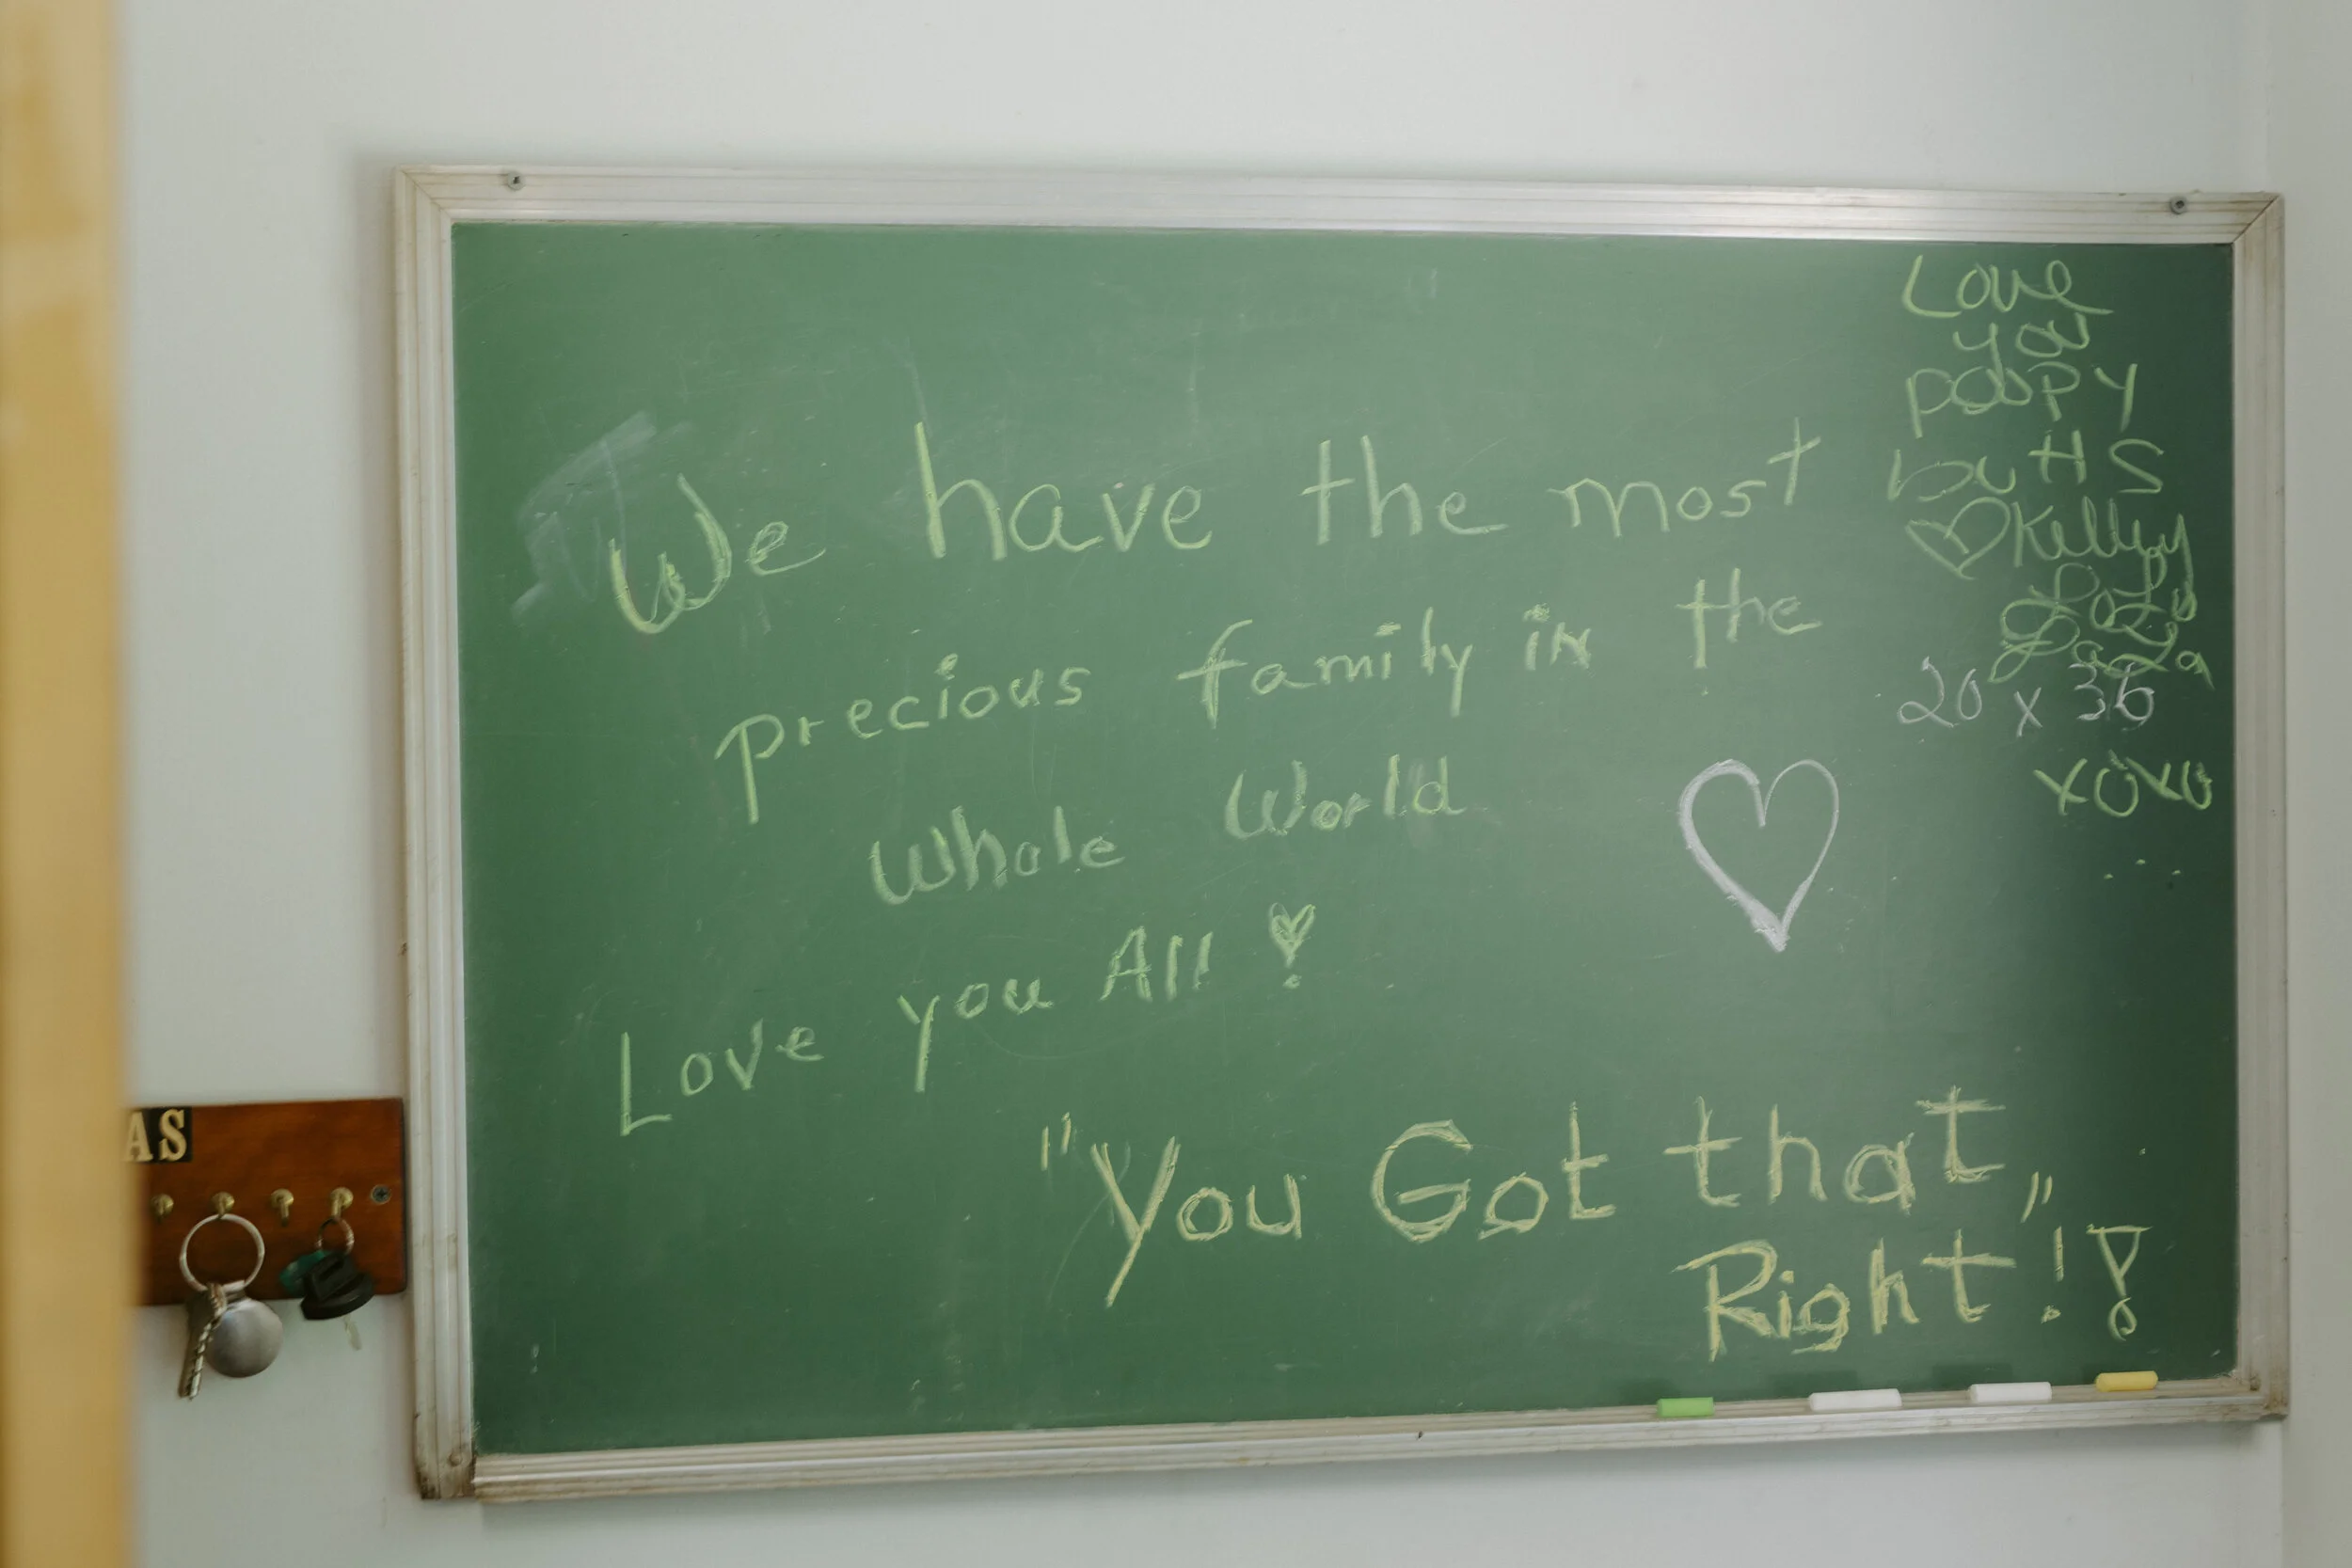 We have the most
precious family in the
Whole World
Love you All
"You Got that"
Right!!
Love
you
poopy
butts
Kelly
20 x 36
XOXO
AS